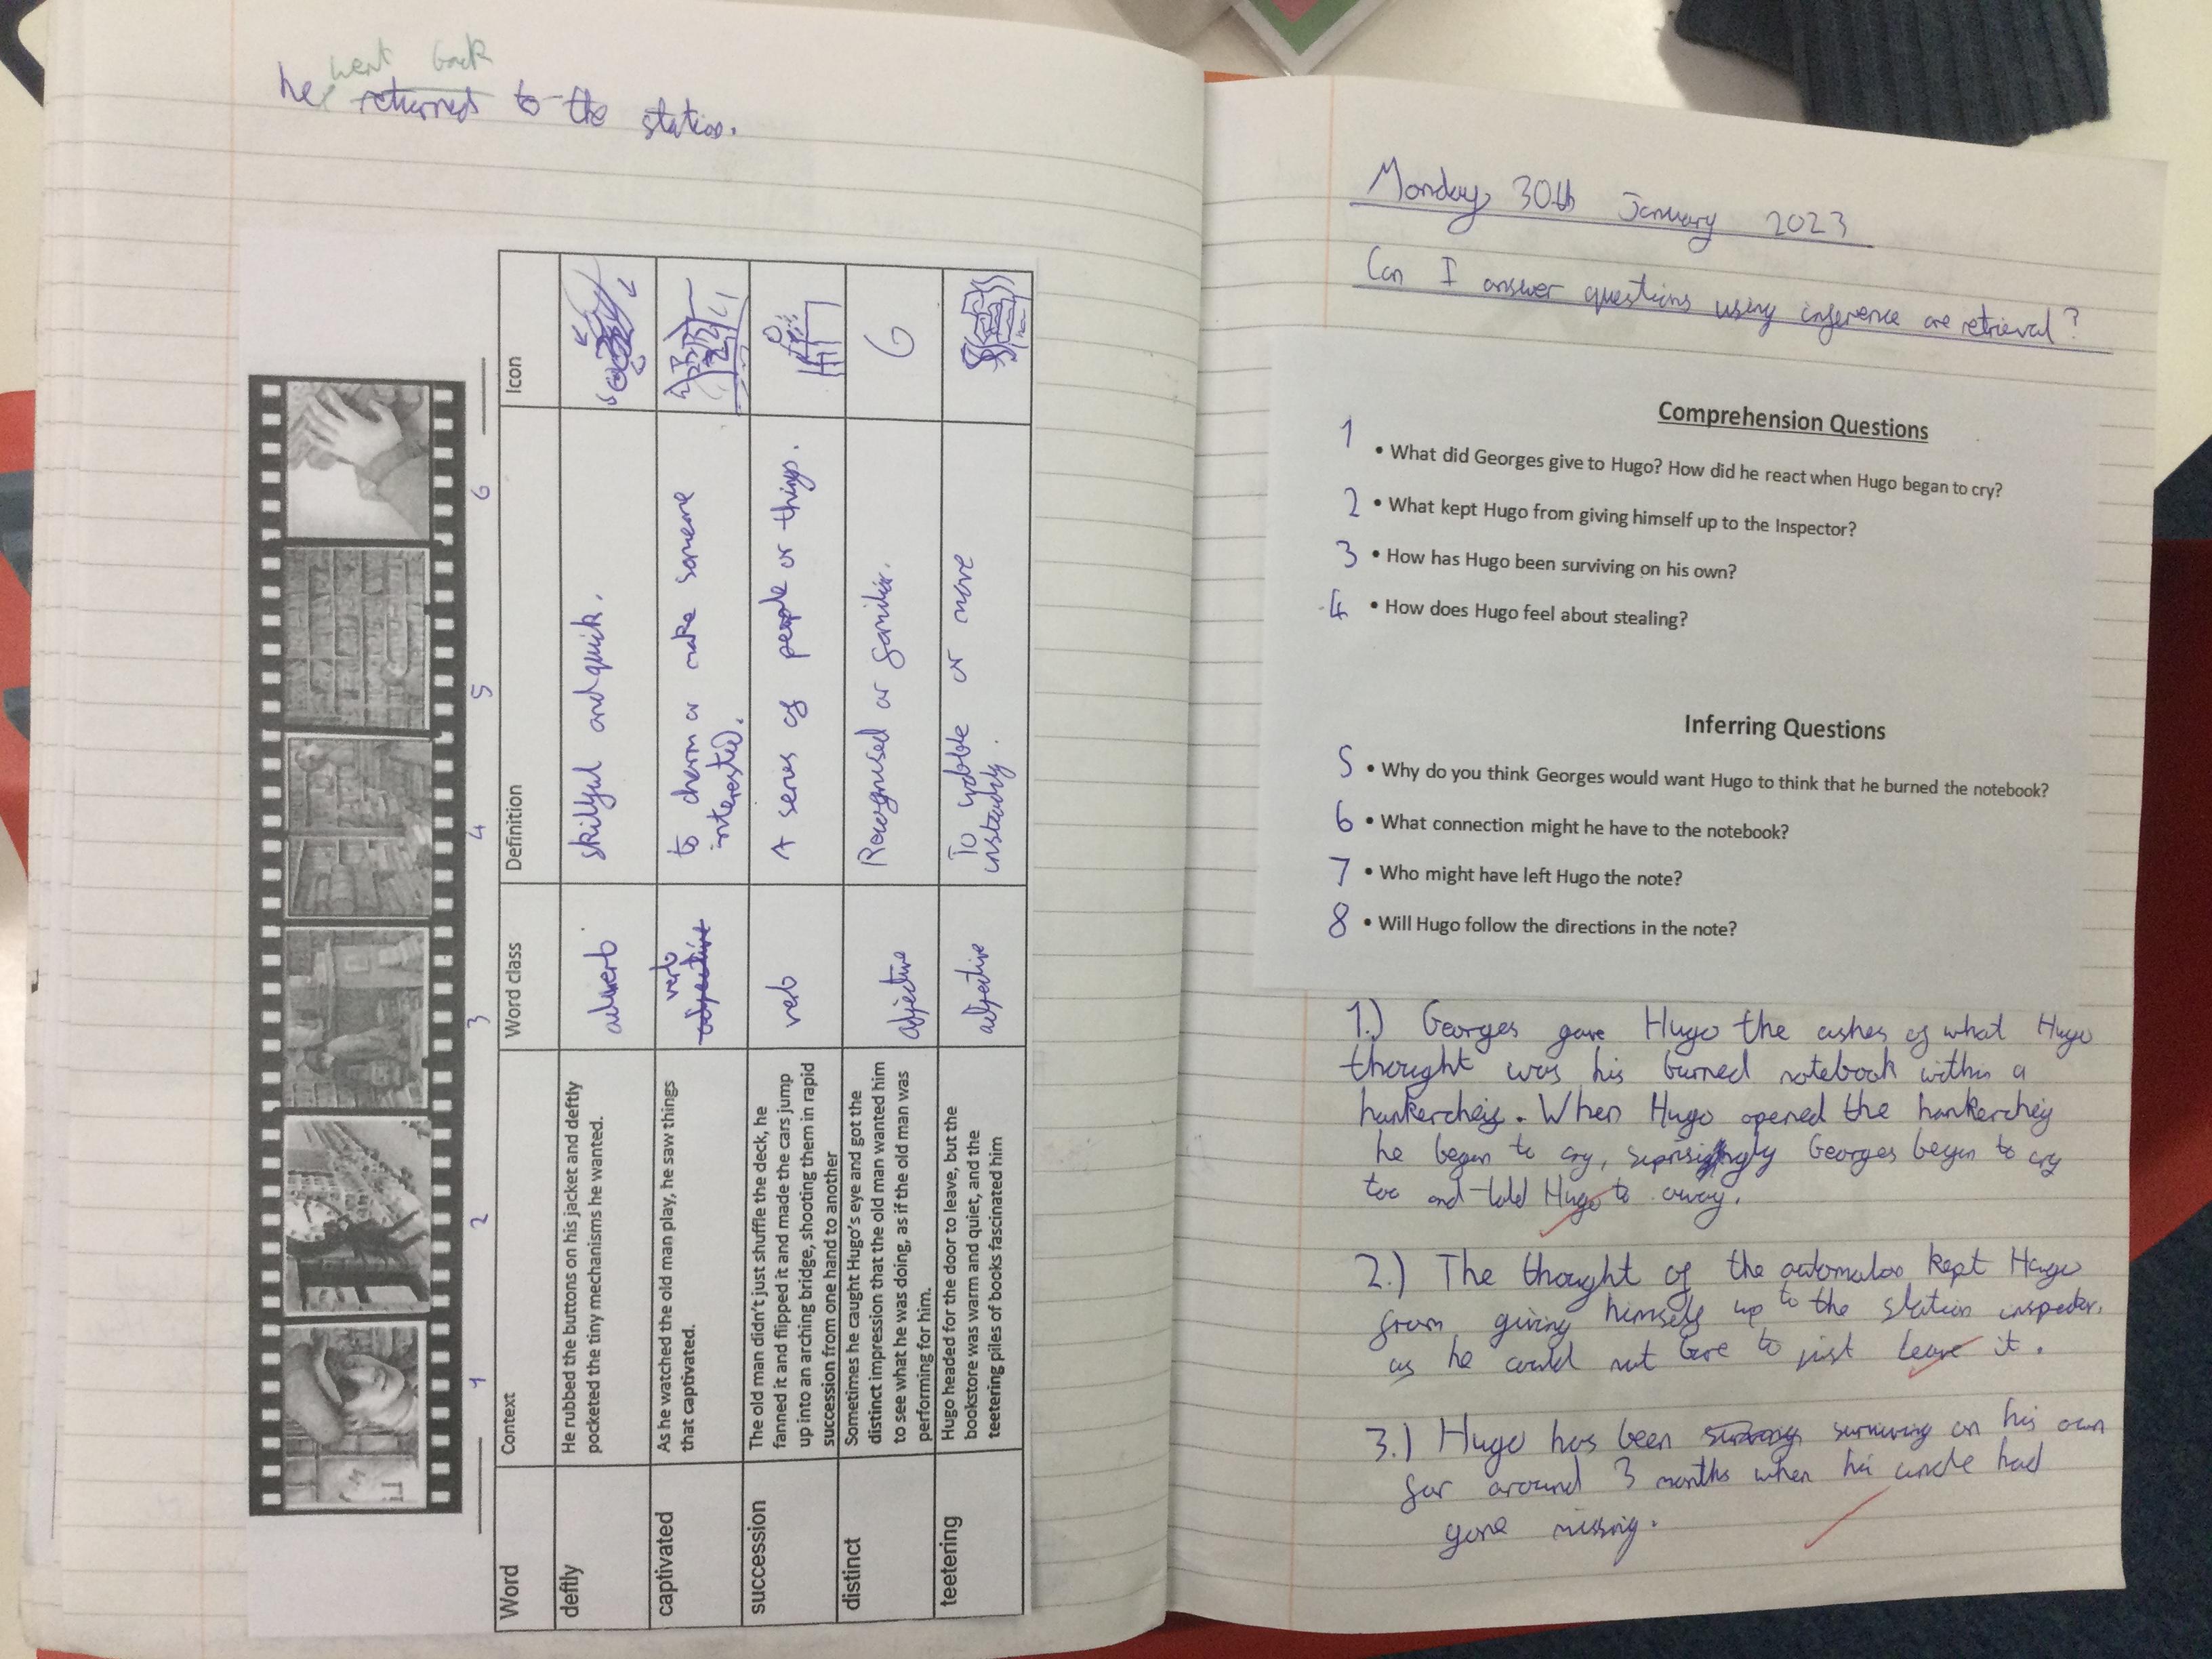 went back
he returned to the station.
1 2 3 4 5 6
Word Context Word class Definition Icon
deftly
He rubbed the buttons on his jacket and deftly
pocketed the tiny mechanisms he wanted.
adverb
skillful and quick.
captivated
As he watched the old man play, he saw things
that captivated.
verb
adjective
to charm or make someone
interested.
succession
The old man didn't just shuffle the deck, he
fanned it and flipped it and made the cars jump
up into an arching bridge, shooting them in rapid
succession from one hand to another
verb
A series of people or things.
distinct
Sometimes he caught Hugo's eye and got the
distinct impression that the old man wanted him
to see what he was doing, as if the old man was
performing for him.
adjective
Rowognised or familiar.
6
teetering
Hugo headed for the door to leave, but the
bookstore was warm and quiet, and the
teetering piles of books fascinated him
adjective
To wobble or move
unsteady.
Monday 30th January 2023
Can I answer questions using inference are retrieval?
Comprehension Questions
1 • What did Georges give to Hugo? How did he react when Hugo began to cry?
2 • What kept Hugo from giving himself up to the Inspector?
3 • How has Hugo been surviving on his own?
4 • How does Hugo feel about stealing?
Inferring Questions
5 • Why do you think Georges would want Hugo to think that he burned the notebook?
6 • What connection might he have to the notebook?
7 • Who might have left Hugo the note?
8 • Will Hugo follow the directions in the note?
1.) Georges gave Hugo the ashes of what Hugo
thought was his burned notebook within a
hankercheif. When Hugo opened the hankercheif
he began to cry, suprisingly Georges began to cry
too and told Hugo to away.
2.) The thought of the automaton kept Hugo
from giving himself up to the station inspector.
as he could not bare to just leave it.
3.) Hugo has been surviving on his own
for around 3 months when his uncle had
gone missing.